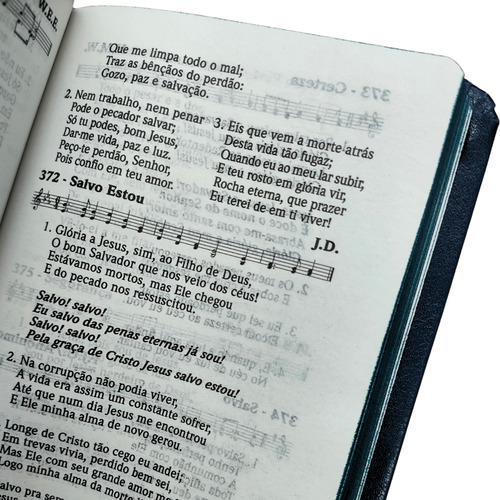 W.E.E.
M.W.
Que me limpa todo o mal;
Traz as bênçãos do perdão:
Gozo, paz e salvação.
2. Nem trabalho, nem penar
Pode o pecador salvar;
Só tu podes, bom Jesus,
Dar-me vida, paz e luz.
Peço-te perdão, Senhor,
Pois confio em teu amor.
3. Eis que vem a morte atrás
Desta vida tão fugaz;
Quando eu ao meu lar subir,
E teu rosto em glória vir,
Rocha eterna, que prazer
Eu terei de em ti viver!
372 - Salvo Estou
J.D.
1. Glória a Jesus, sim, ao Filho de Deus,
O bom Salvador que nos veio dos céus!
Estávamos mortos, mas Ele chegou
E do pecado nos ressuscitou.
Salvo! salvo!
Eu salvo das penas eternas já sou!
Salvo! salvo!
Pela graça de Cristo Jesus salvo estou!
2. Na corrupção não podia viver,
A vida era assim um constante sofrer,
Até que num dia Jesus me encontrou
E Ele minha alma de novo gerou.
Longe de Cristo tão cego eu andei;
Em trevas vivia, perdido bem sei,
Mas Ele com seu grande amor me
Logo minha alma da morte
Salvo pra sem